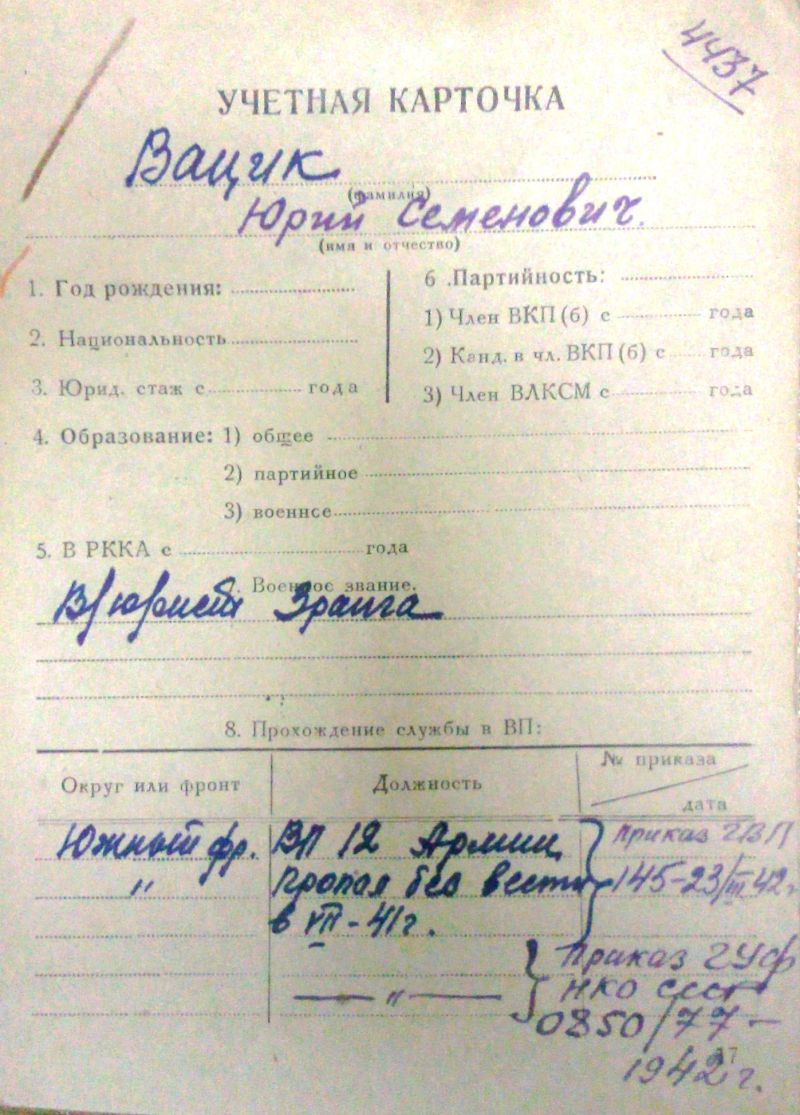 4437
УЧЕТНАЯ КАРТОЧКА
Вацик
(фамилия)
Юрий Семенович.
(имя и отчество)
1. Год рождения:
2. Национальность
3. Юрид. стаж с года
6. Партийность:
1) Член ВКП(б) с года
2) Канд. в чл. ВКП(б) с года
3) Член ВЛКСМ с года
4. Образование: 1) общее
2) партийное
3) военное
5. В РККА с года
Военное звание.
В/юрист 3 ранга
8. Прохождение службы в ВП:
Округ или фронт Должность № приказа
дата
Южный фр. ВП 12 Армии Приказ ГВП
" Пропал без вести 145-23/III 42г
в VIII-41г.
Приказ ГУФ
— " — НКО СССР
0850/77-
1942г.